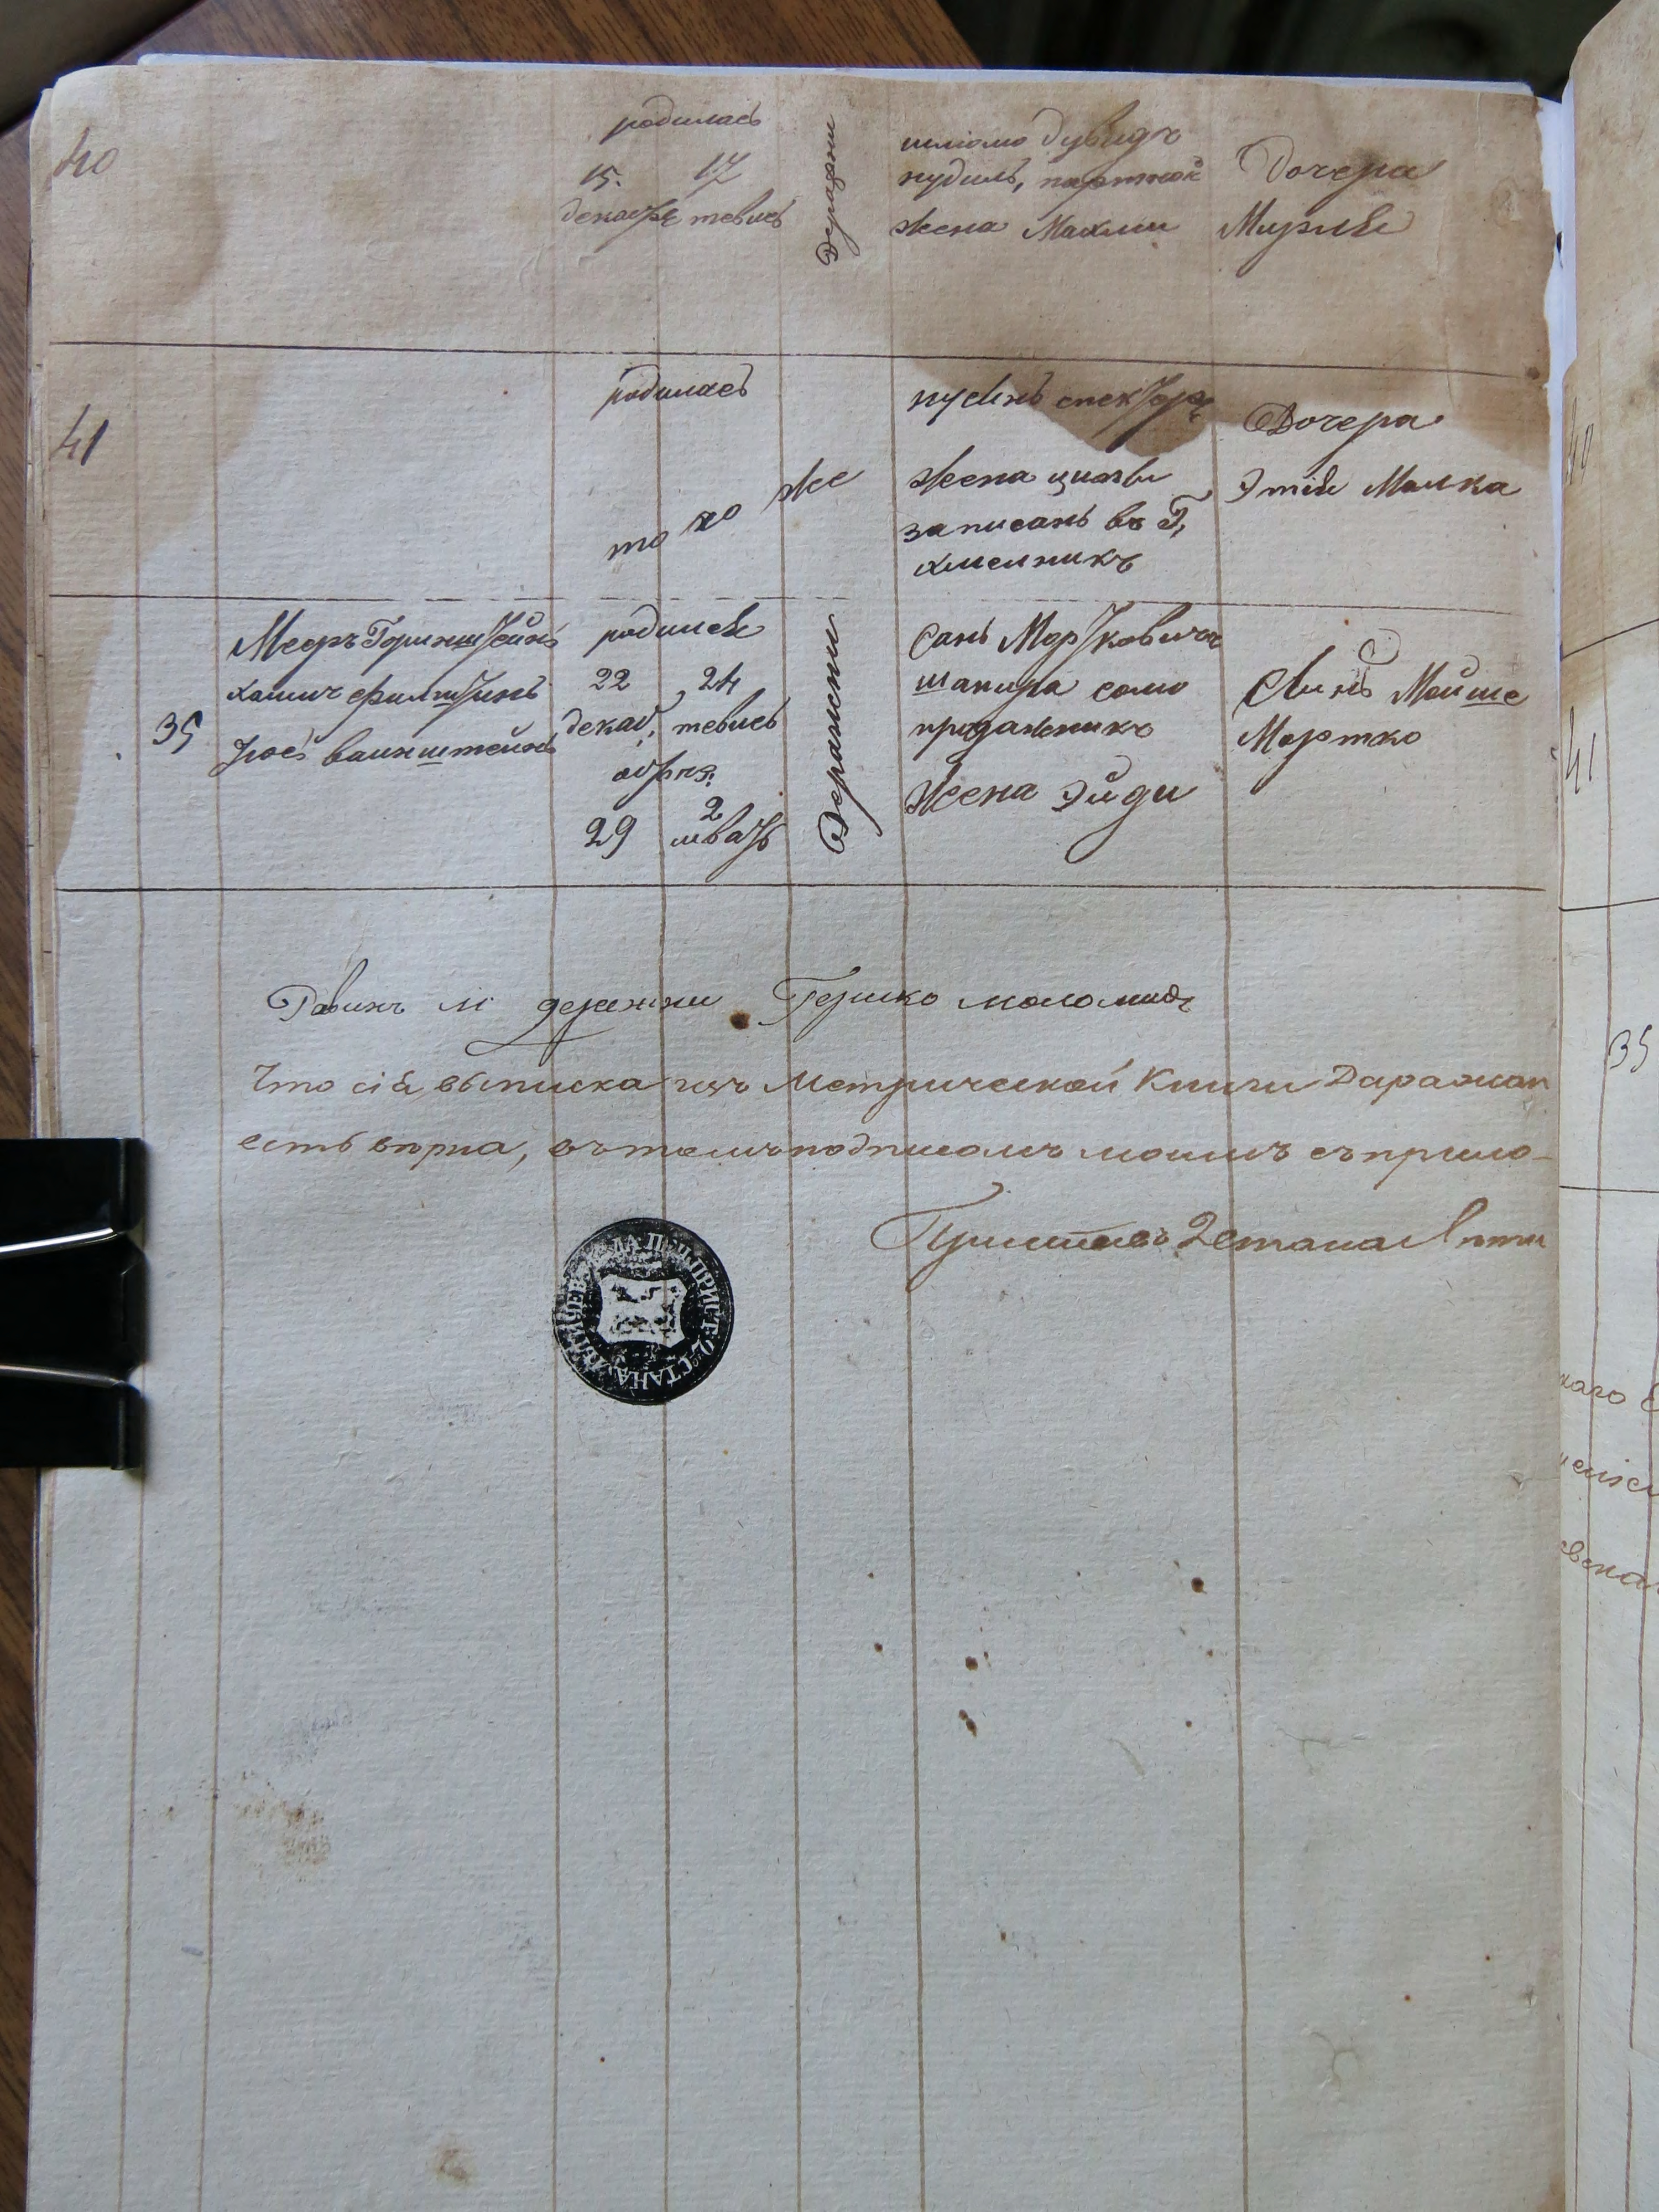 40
родилась
15. 17
декабря тевись
Деражни
шліомо дувидъ
нудиль, портной
жена Махли
Дочера
Мирля
41
родилась
того же
нусинъ спекторъ
жена ципы
записанъ въ Г,
хмелникъ
Дочера
Этія Малка
35
Меаръ Горинштейнъ
хаимъ филштинъ
Іосъ ваинштейнъ
родился
22 24
декаб. тевись
обрез.
29 2 шватъ
Деражни
Санъ Мортковичъ
шапира соло
продавникъ
Жена Эйди
Синъ Мойше
Мортко
Равинъ м деражни Гершко маломидъ
Что сія выписка изъ Метрической Книги Даражан
есть верна, въ томъ подписомъ моимъ съ прило-
Приставъ 2 стана Лети
ЛЕТИЧЕВ УЕЗДА ПЕЧ. ПРИСТ. 2го СТАНА
40
41
35
каго Е